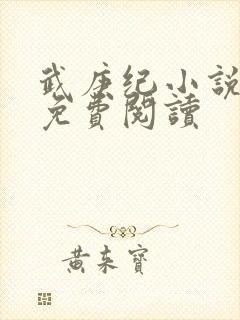 武庚纪小説
免費閱讀
黄东寶